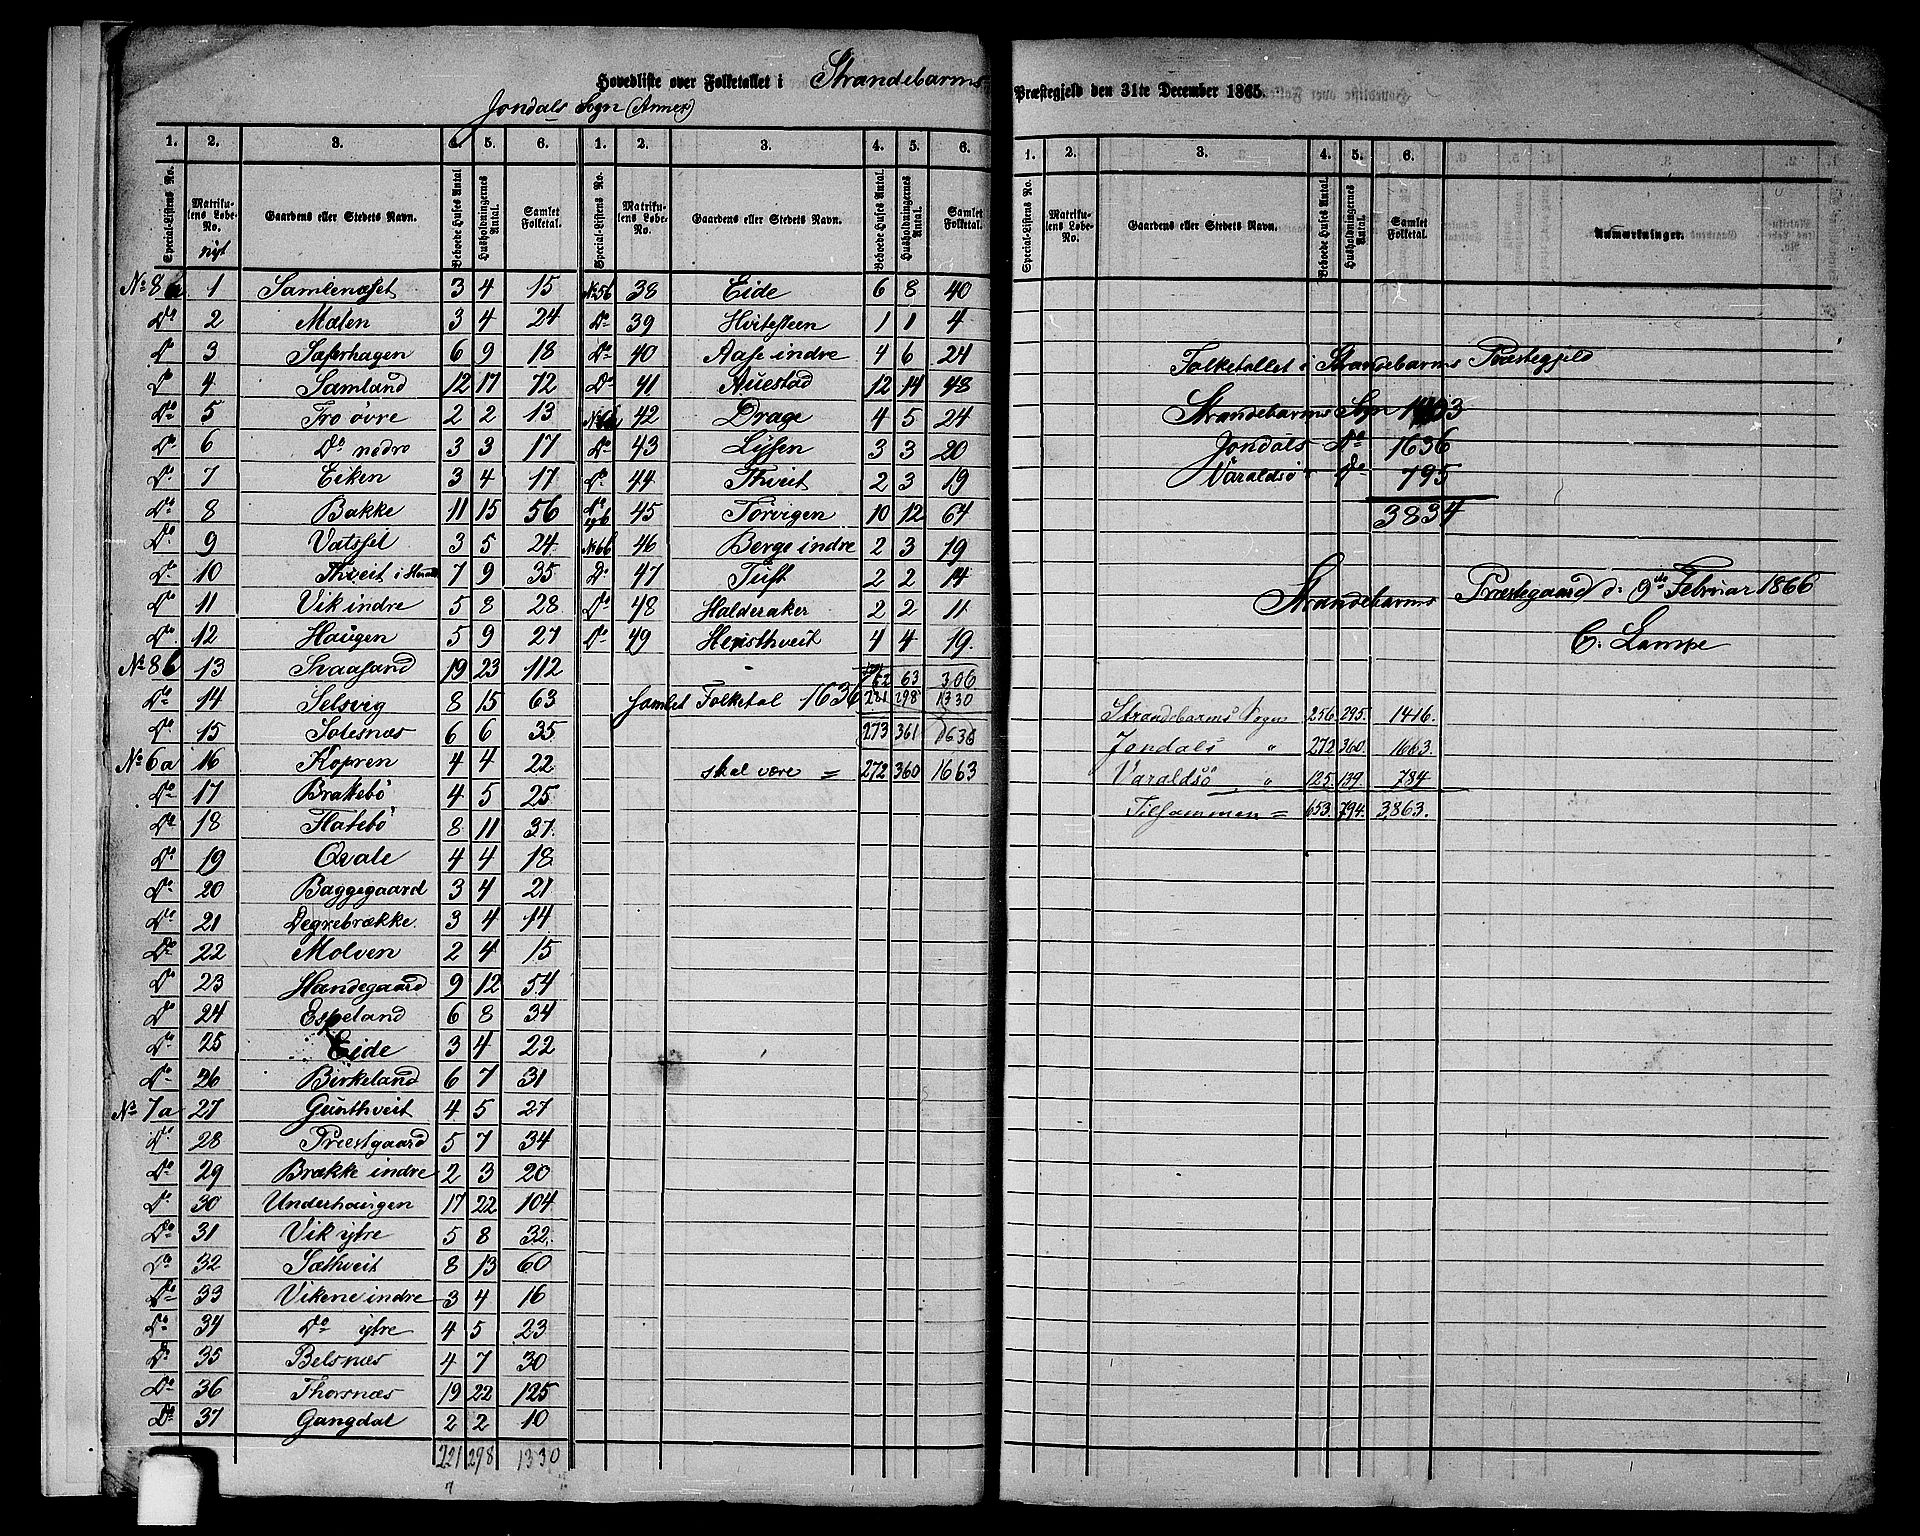 Hovedliste over Folketallet i Strandebarms Præstegjeld den 31te December 1865.
Jondals Sogn (Annex)
1. 2. 3. 4. 5. 6. 1. 2. 3. 4. 5. 6. 1. 2. 3. 4. 5. 6.
Special-Listens No. Matrikulens Løbe-No. nyt Gaardens eller Stedets Navn. Beboede Huses Antal Husholdningernes Antal. Samlet Folketal.
Special-Listens No. Matrikulens Løbe-No. Gaardens eller Stedets Navn. Beboede Huses Antal. Husholdningernes Antal. Samlet Folketal.
Special-Listens No. Matrikulens Løbe-No. Gaardens eller Stedets Navn. Beboede Huses Antal. Husholdningernes Antal. Samlet Folketal. Anmærkninger.
No 8a 1 Samlenæsset 3 4 15
Do 2 Mælen 3 4 24
Do 3 Sæterhagen 6 9 18
Do 4 Samland 12 17 72
Do 5 Tro øvre 2 2 13
Do 6 Do nedre 3 3 17
Do 7 Eiken 3 4 17
Do 8 Bakke 11 15 56
Do 9 Vatssel 3 5 24
Do 10 Thveit i 7 9 35
Do 11 Vik indre 5 8 28
Do 12 Haugen 5 9 27
No 8b 13 Svaasand 19 23 112
Do 14 Selsvig 8 15 63
Do 15 Solesnæs 6 6 35
No 6a 16 Kopren 4 4 22
Do 17 Brattebö 4 5 25
Do 18 Flatebö 8 11 37
Do 19 Qvale 4 4 18
Do 20 Baggegaard 3 4 21
Do 21 Degrebrække 3 4 14
Do 22 Molven 2 4 15
Do 23 Handegaard 9 12 54
Do 24 Espeland 6 8 34
Do 25 Eide 3 4 22
Do 26 Birkeland 6 7 31
No 7a 27 Gunthveit 4 5 27
Do 28 Præstgaard 5 7 34
Do 29 Brække indre 2 3 20
Do 30 Underhaugen 17 22 104
Do 31 Vik ytre 5 8 32
Do 32 Sæthveit 8 13 60
Do 33 Vikene indre 3 4 16
Do 34 Do ytre 4 5 23
Do 35 Belsnæs 4 7 30
Do 36 Thorsnæs 19 22 125
Do 37 Gangdal 2 2 10
221 298 1330
38 Eide 6 8 40
Do 39 Hvitesteen 1 1 4
Do 40 Aase indre 4 6 24
Do 41 Auestad 12 14 48
42 Drage 4 5 24
Do 43 Lissen 3 3 20
Do 44 Thveit 2 3 19
Do 45 Torvigen 10 12 64
No 6b 46 Berge indre 2 3 19
Do 47 Tuft 2 2 14
Do 48 Halderaker 2 2 11
Do 49 Heisthveit 4 4 19
62 63 306
Samlet Folketal 1636 221 298 1330
273 361 1636
skal være = 272 360 1663
Folketallet i Strandebarms Præstegjeld
Strandebarms Sogn 1403
Jondals Do 1636
Varaldsö Do 795
3834
Strandebarms Præstegaard d. 9de Februar 1866
C. Lampe
Strandebarms Sogn 256. 295. 1416.
Jondals " 272 360. 1663.
Varaldsö " 125. 139. 784
Tilsammen = 653. 794. 3863.